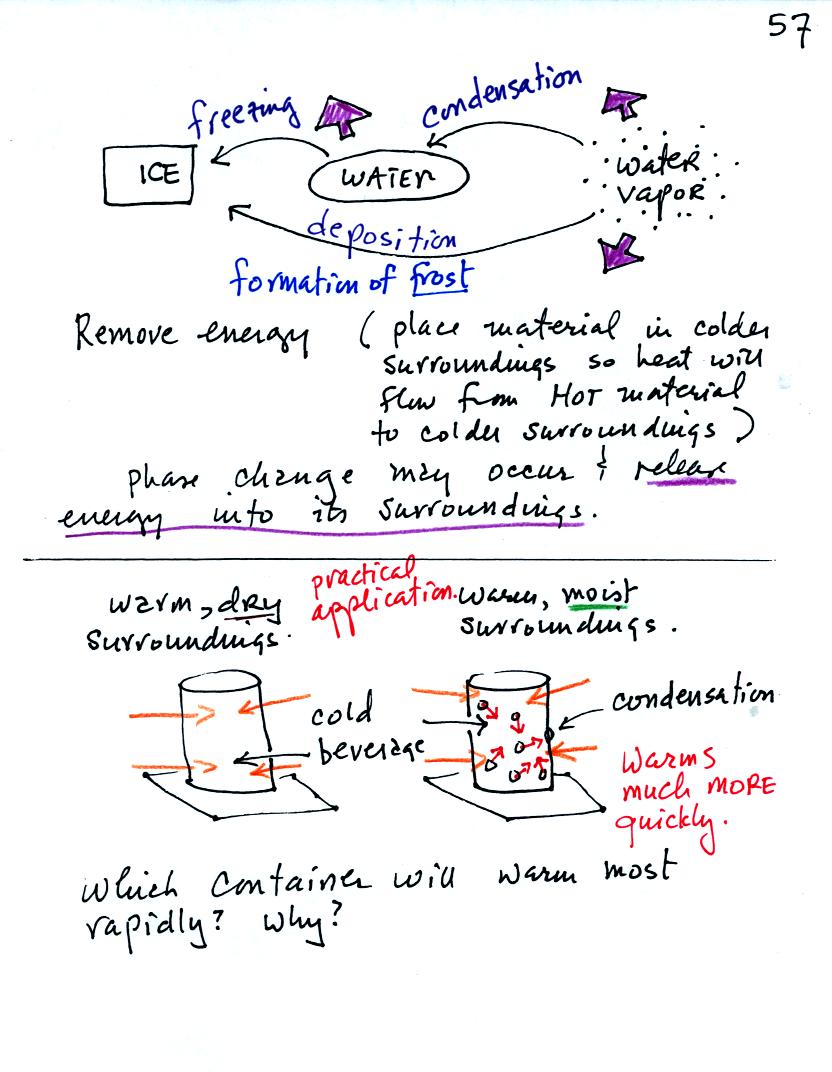 57
freezing
condensation
ICE
WATER
water
vapor
deposition
formation of frost
Remove energy ( place material in colder
surroundings so heat will
flow from HOT material
to colder surroundings )
phase change may occur & release
energy into its surroundings.
practical
application.
warm, dry
surroundings.
warm, moist
surroundings.
cold
beverage
condensation
warms
much MORE
quickly.
which container will warm most
rapidly? why?